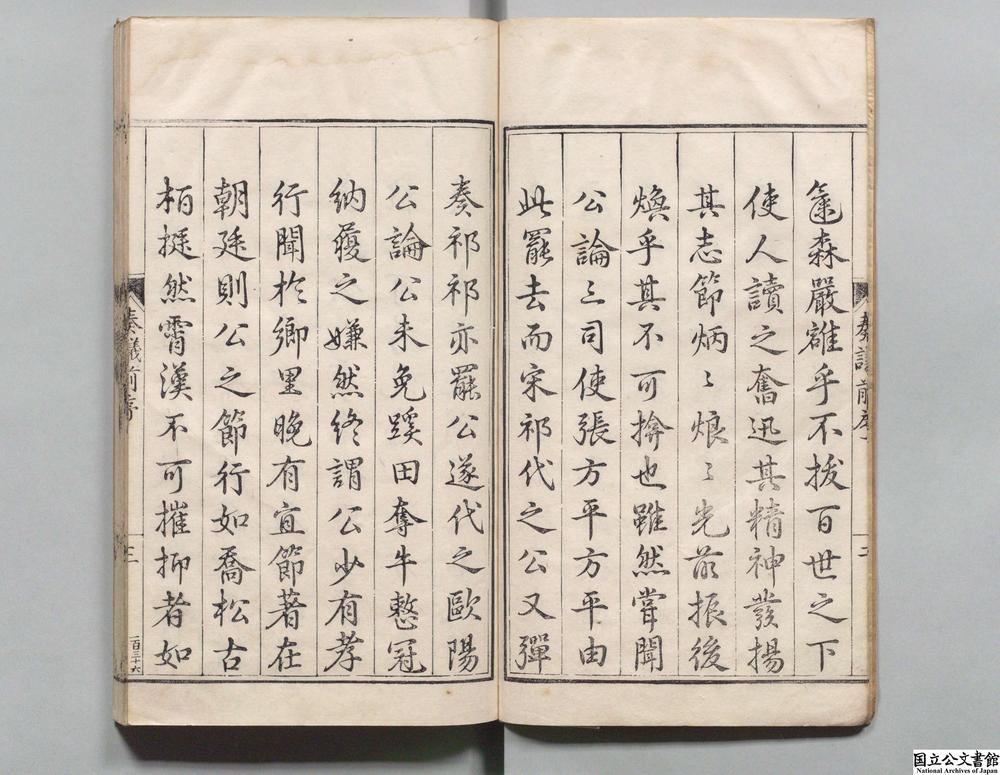 森嚴確乎不拔百世之下
使人讀之奮迅其精神發揚
其志節炳〻烺〻光前振後
煥乎其不可揜也雖然嘗聞
公論三司使張方平方平由
此罷去而宋祁代之公又彈
奏議前序
二
奏祁祁亦罷公遂代之歐陽
公論公未免蹊田奪牛整冠
納履之嫌然終謂公少有孝
行聞於鄉里晚有直節著在
朝廷則公之節行如喬松古
栢挺然霄漢不可摧抑者如
奏議前序
三
一百三十六
国立公文書館
National Archives of Japan